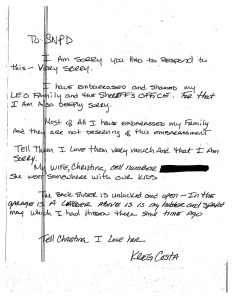 To: SNPD
I Am Sorry you Had to Respond to
this - Very Sorry.
I have embarrassed and shamed my
LEO Family and the Sheriff's Office. For that
I Am Also Deeply Sorry.
Most of All I have embarrassed my Family
And they are not deserving of this embarrassment
Tell Them I Love them very much And that I Am
Sorry.
My wife, Christina, cell number
She went somewhere with our kids
The Back Slider is unlocked and open - In the
garage is A Ladder Above is is my and
may which I had Hidden there some time ago
Tell Christina I Love her.
Kreg Costa